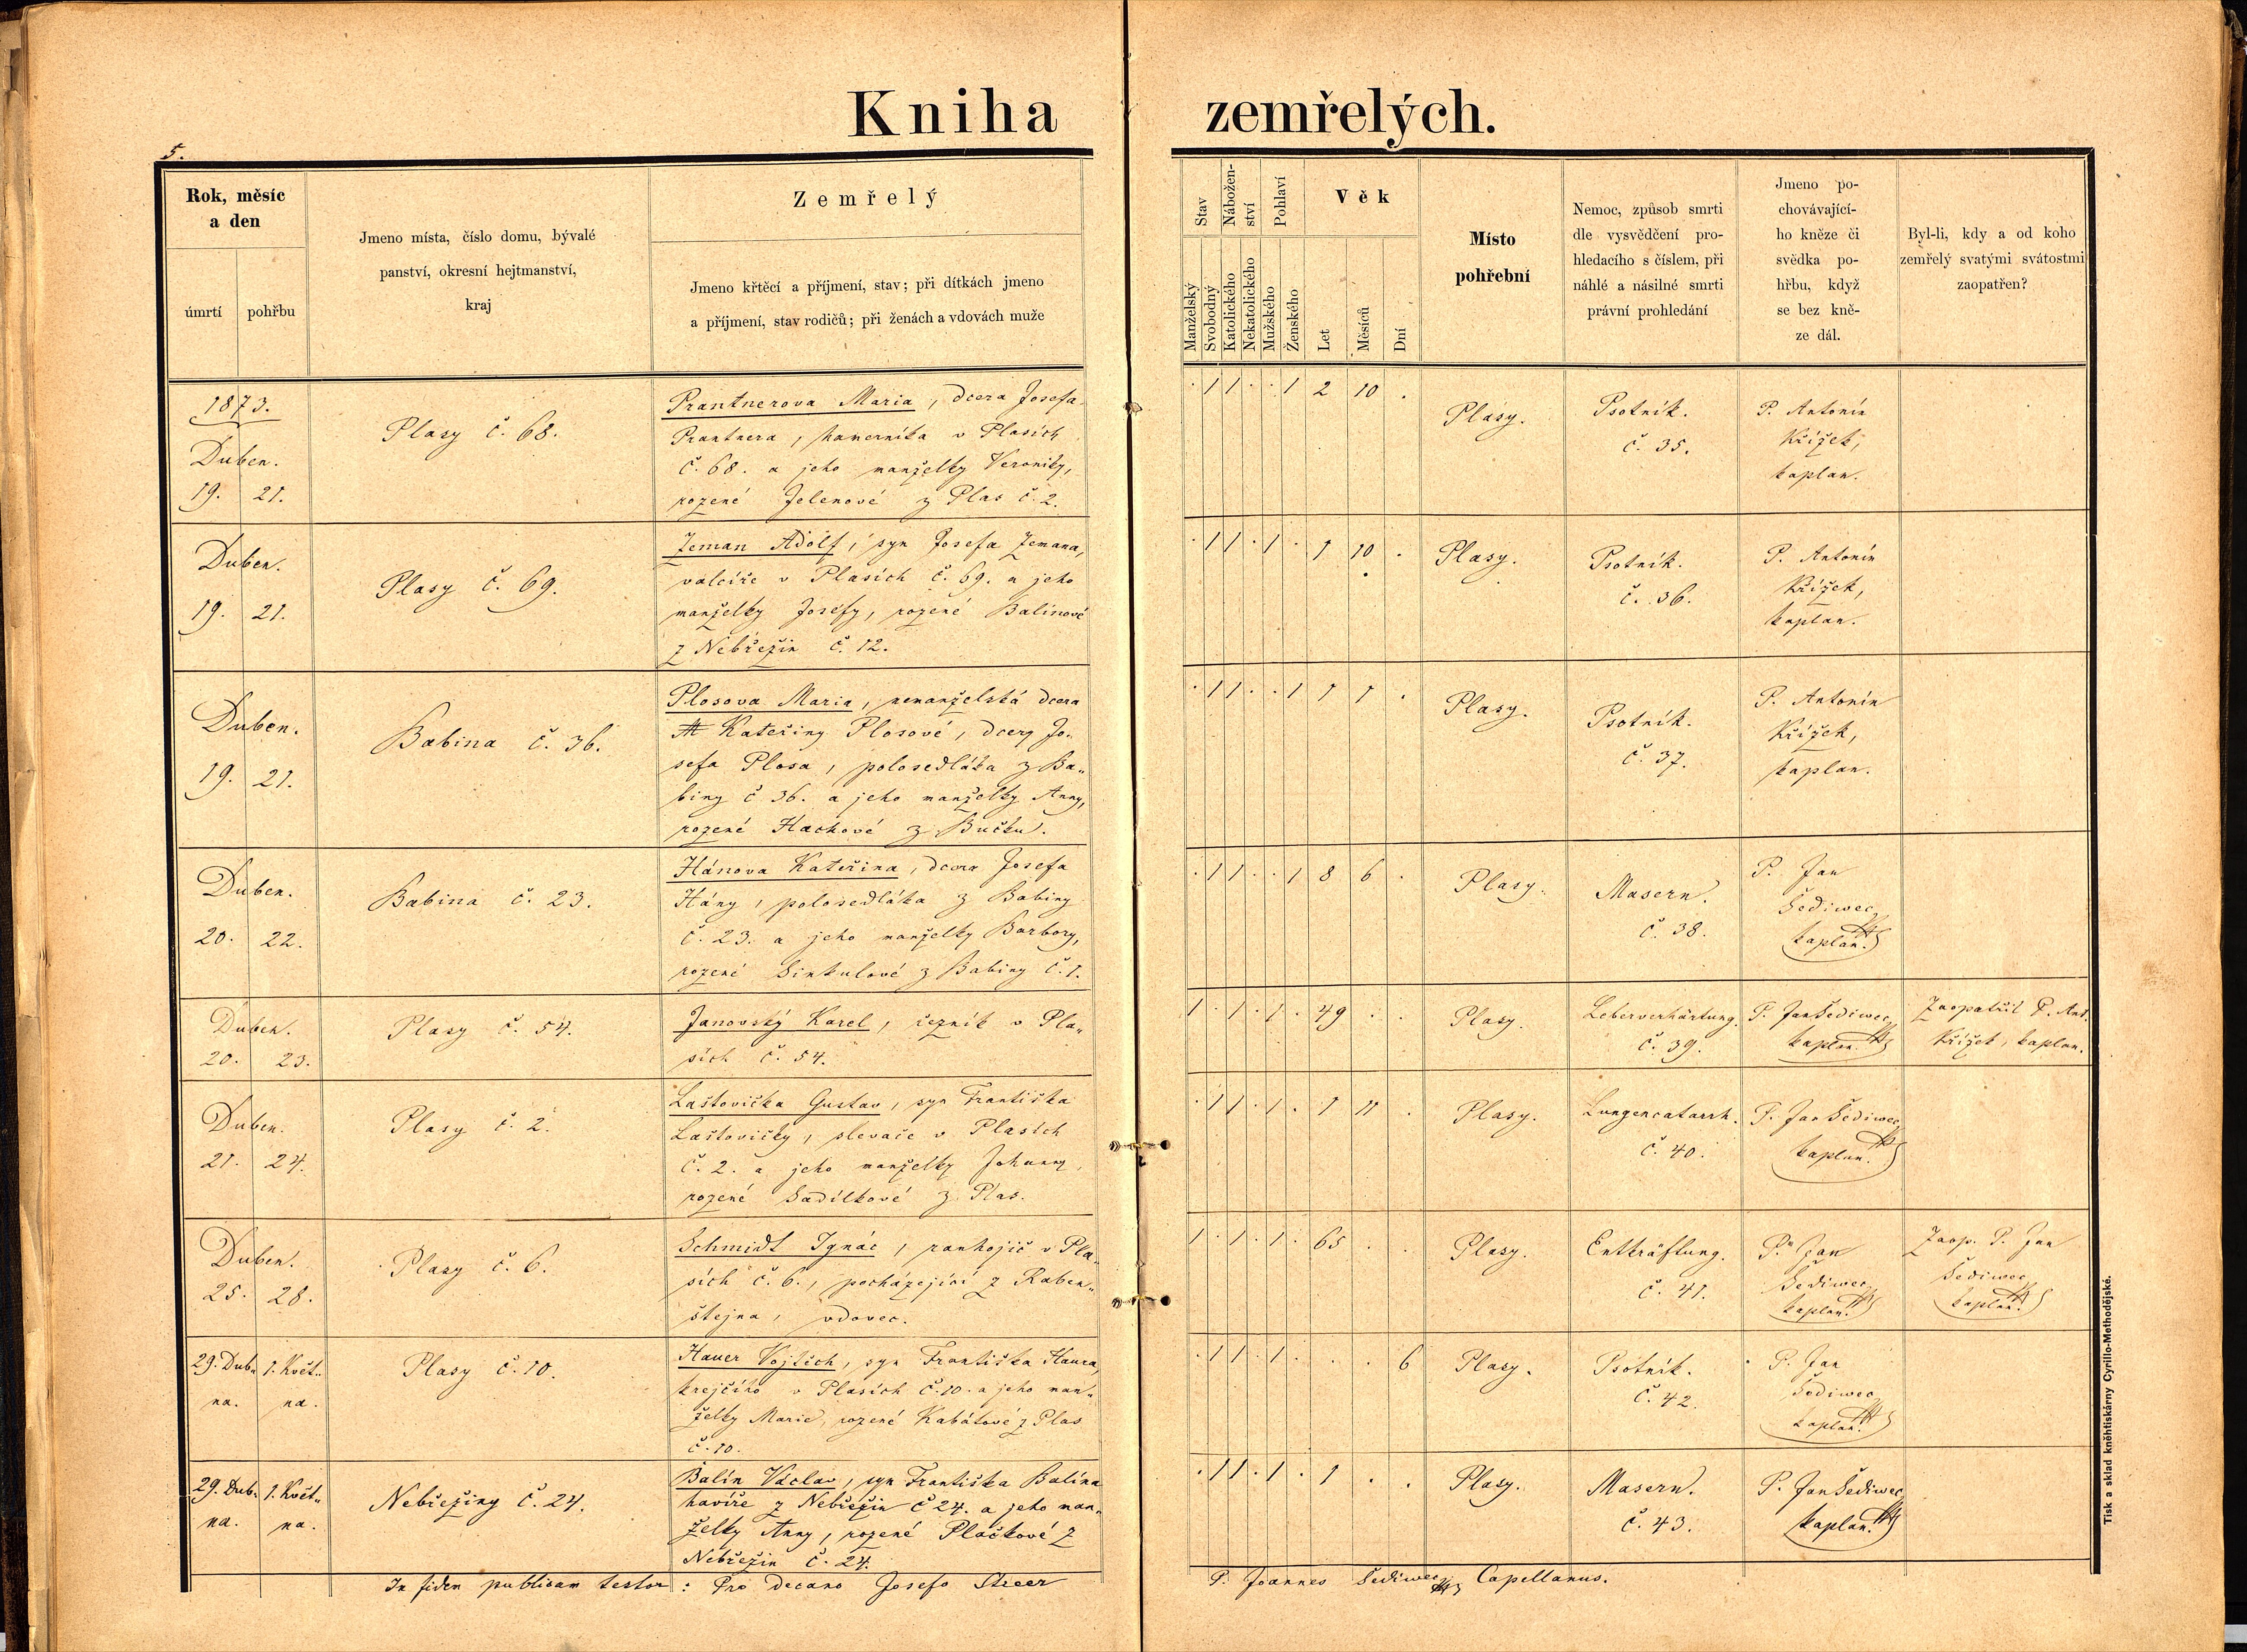 Kniha zemřelých.
5.
Rok, měsíc
a den
úmrtí
pohřbu
Jmeno místa, číslo domu, bývalé
panství, okresní hejtmanství,
kraj
Zemřelý
Jmeno křtěcí a příjmení, stav; při dítkách jmeno
a příjmení, stav rodičů; při ženách a vdovách muže
Stav
Nábožen-
ství
Pohlaví
Věk
Manželský
Svobodný
Katolického
Nekatolického
Mužského
Ženského
Let
Měsíců
Dní
Místo
pohřební
Nemoc, způsob smrti
dle vysvědčení pro-
hledacího s číslem, při
náhlé a násilné smrti
právní prohledání
Jmeno po-
chovávající-
ho kněze či
svědka po-
hřbu, když
se bez kně-
ze dál.
Byl-li, kdy a od koho
zemřelý svatými svátostmi
zaopatřen?
1873.
Duben.
19. 21.
Plasy č. 68.
Prantnerova Maria, dcera Josefa
Prantnera, hamerníka v Plasích
č. 68. a jeho manželky Veroniky,
rozené Jelenové z Plas č. 2.
. 1 1 . . 1 2 10 .
Plasy.
Psotník.
č. 35.
P. Antonín
Křížek,
kaplan.
Duben.
19. 21.
Plasy č. 69.
Zeman Adolf, syn Josefa Zemana,
valcíře v Plasích č. 69. a jeho
manželky Josefy, rozené Balínové
z Nebřežin č. 12.
. 1 1 . 1 . 1 10 .
Plasy.
Psotník.
č. 36.
P. Antonín
Křížek,
kaplan.
Duben.
19. 21.
Babina č. 36.
Plosova Maria, nemanželská dcera
Kateřiny Plosové, dcery Jo„
sefa Plosa, polosedláka z Ba„
biny č 36. a jeho manželky Anny,
rozené Hachové z Bučku.
. 1 1 . . 1 1 1 .
Plasy.
Psotník.
č. 37.
P. Antonín
Křížek,
kaplan.
Duben.
20. 22.
Babina č. 23.
Hánova Kateřina, dcera Josefa
Hány, polosedláka z Babiny
č. 23. a jeho manželky Barbory,
rozené Sinkulové z Babiny č. 1.
. 1 1 . . 1 8 6 .
Plasy.
Masern.
č. 38.
P. Jan
Šediwec,
kaplan.
Duben.
20. 23.
Plasy č. 54.
Janovský Karel, řezník v Pla„
sích č. 54.
1 . 1 . 1 . 49 . .
Plasy.
Leberverhärtung.
č. 39.
P. Jan Šediwec,
kaplan.
Zaopatřil P. Ant.
Křížek, kaplan.
Duben.
21. 24.
Plasy č. 2.
Laštovička Gustav, syn Františka
Laštovičky, slevače v Plasích
č. 2. a jeho manželky Johanny,
rozené Sadílkové z Plas.
. 1 1 . 1 . 1 11 .
Plasy.
Lungencatarrh.
č. 40.
P. Jan Šediwec,
kaplan.
Duben.
25. 28.
Plasy č. 6.
Schmidt Ignác, ranhojič v Pla„
sích č. 6., pocházející z Raben„
štejna, vdovec.
1 . 1 . 1 . 65 . .
Plasy.
Entkräftung.
č. 41.
P. Jan
Šediwec,
kaplan.
Zaop. P. Jan
Šediwec,
kaplan.
29. Dub„ 1. Květ„
na. na.
Plasy č. 10.
Hauer Vojtěch, syn Františka Haura,
krejčího v Plasích č. 10. a jeho man„
želky Marie, rozené Kabátové z Plas
č. 10.
. 1 1 . 1 . . . 6
Plasy.
Psotník.
č. 42.
P. Jan
Šediwec,
kaplan.
29. Dub„ 1. Květ„
na. na.
Nebřežiny č. 24.
Balín Václav, syn Františka Balína
havíře z Nebřežin č 24. a jeho man„
želky Anny, rozené Plačkové z
Nebřežin č. 24.
. 1 1 . 1 . 1 . .
Plasy.
Masern.
č. 43.
P. Jan Šediwec,
kaplan.
In fidem publicam testor: Pro decano Josefo Streer P. Joannes Šediwec, Capellanus.
Tisk a sklad kněhtiskárny Cyrillo-Methodějské.